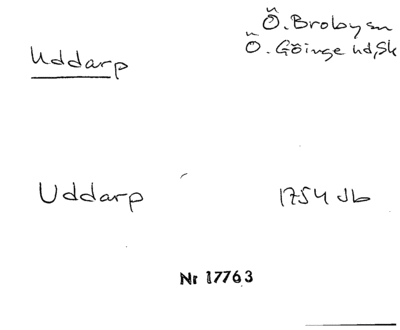 Ö. Broby sn
Uddarp
Ö. Göinge hd, Sk
Uddarp
1754 Jb
Nr 17763